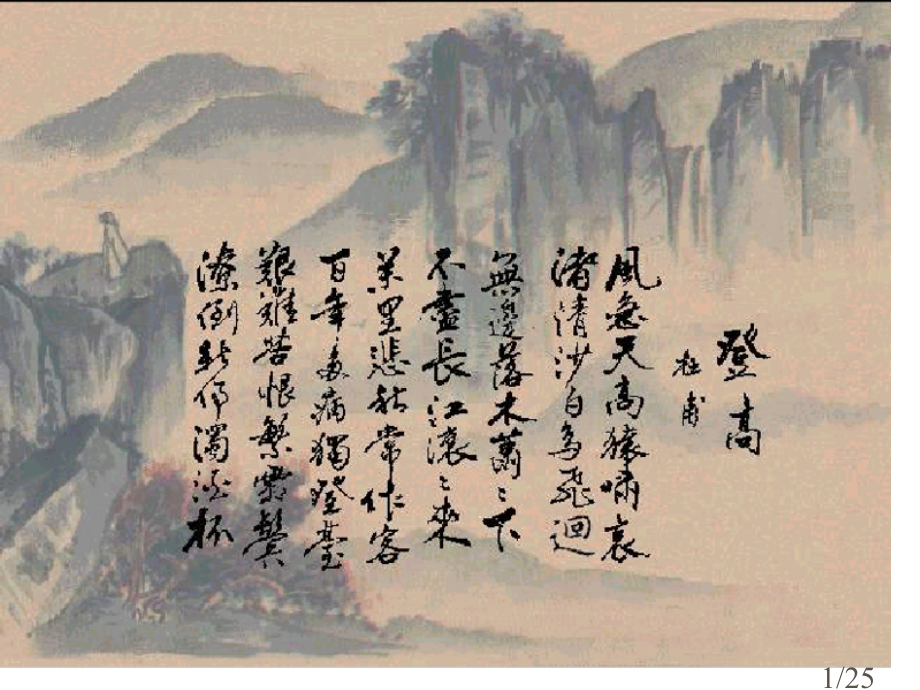 登高
杜甫
風急天高猿嘯哀
渚清沙白鳥飛迴
無邊落木蕭〻下
不盡長江滾〻來
萬里悲秋常作客
百年多病獨登臺
艱難苦恨繁霜鬢
潦倒新停濁酒杯
1/25